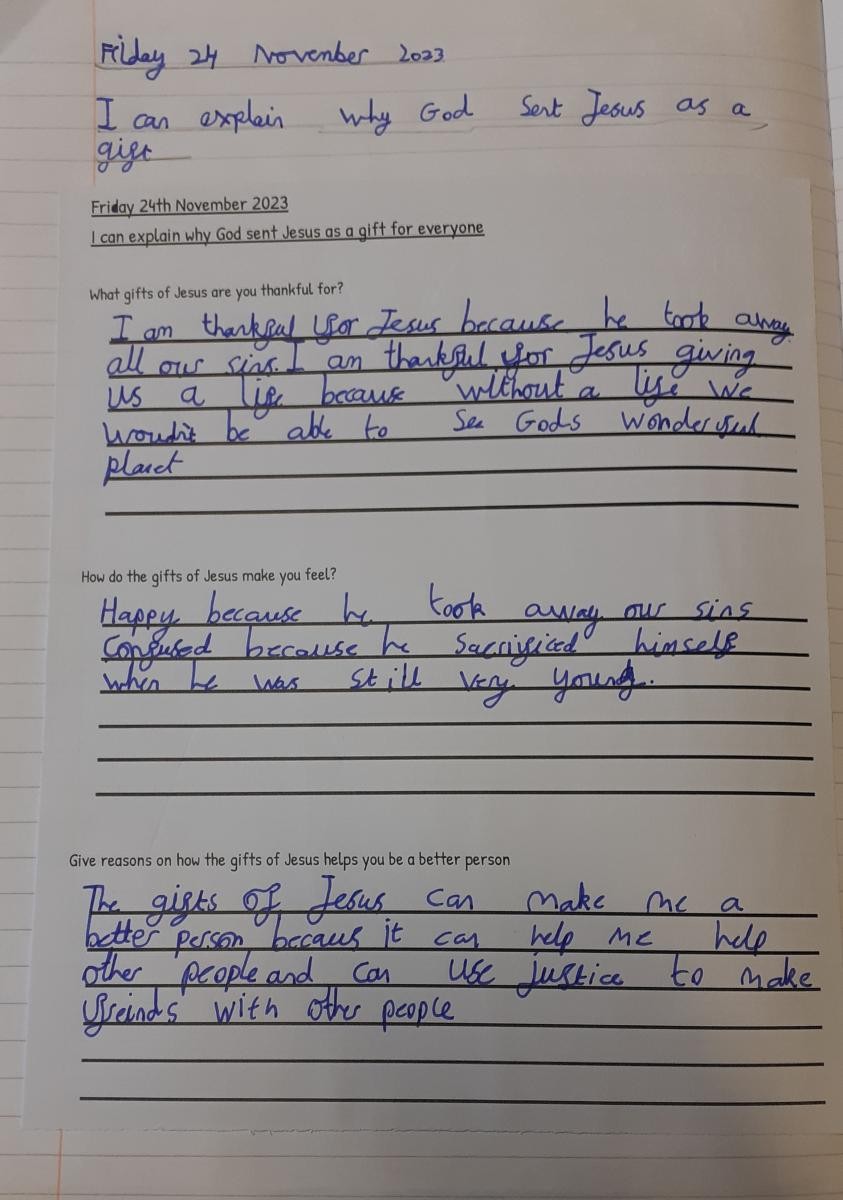 Friday 24 November 2023
I can explain why God sent Jesus as a
gift
Friday 24th November 2023
I can explain why God sent Jesus as a gift for everyone
What gifts of Jesus are you thankful for?
I am thankful for Jesus because he took away
all our sins. I am thankful for Jesus giving
us a life because without a life we
woudn't be able to see Gods wonderful
planet
How do the gifts of Jesus make you feel?
Happy because he took away our sins
Confused because he sacrificed himself
when he was still very young.
Give reasons on how the gifts of Jesus helps you be a better person
The gifts of Jesus can make me a
better person becaus it can help me help
other people and can use justice to make
freinds with other people